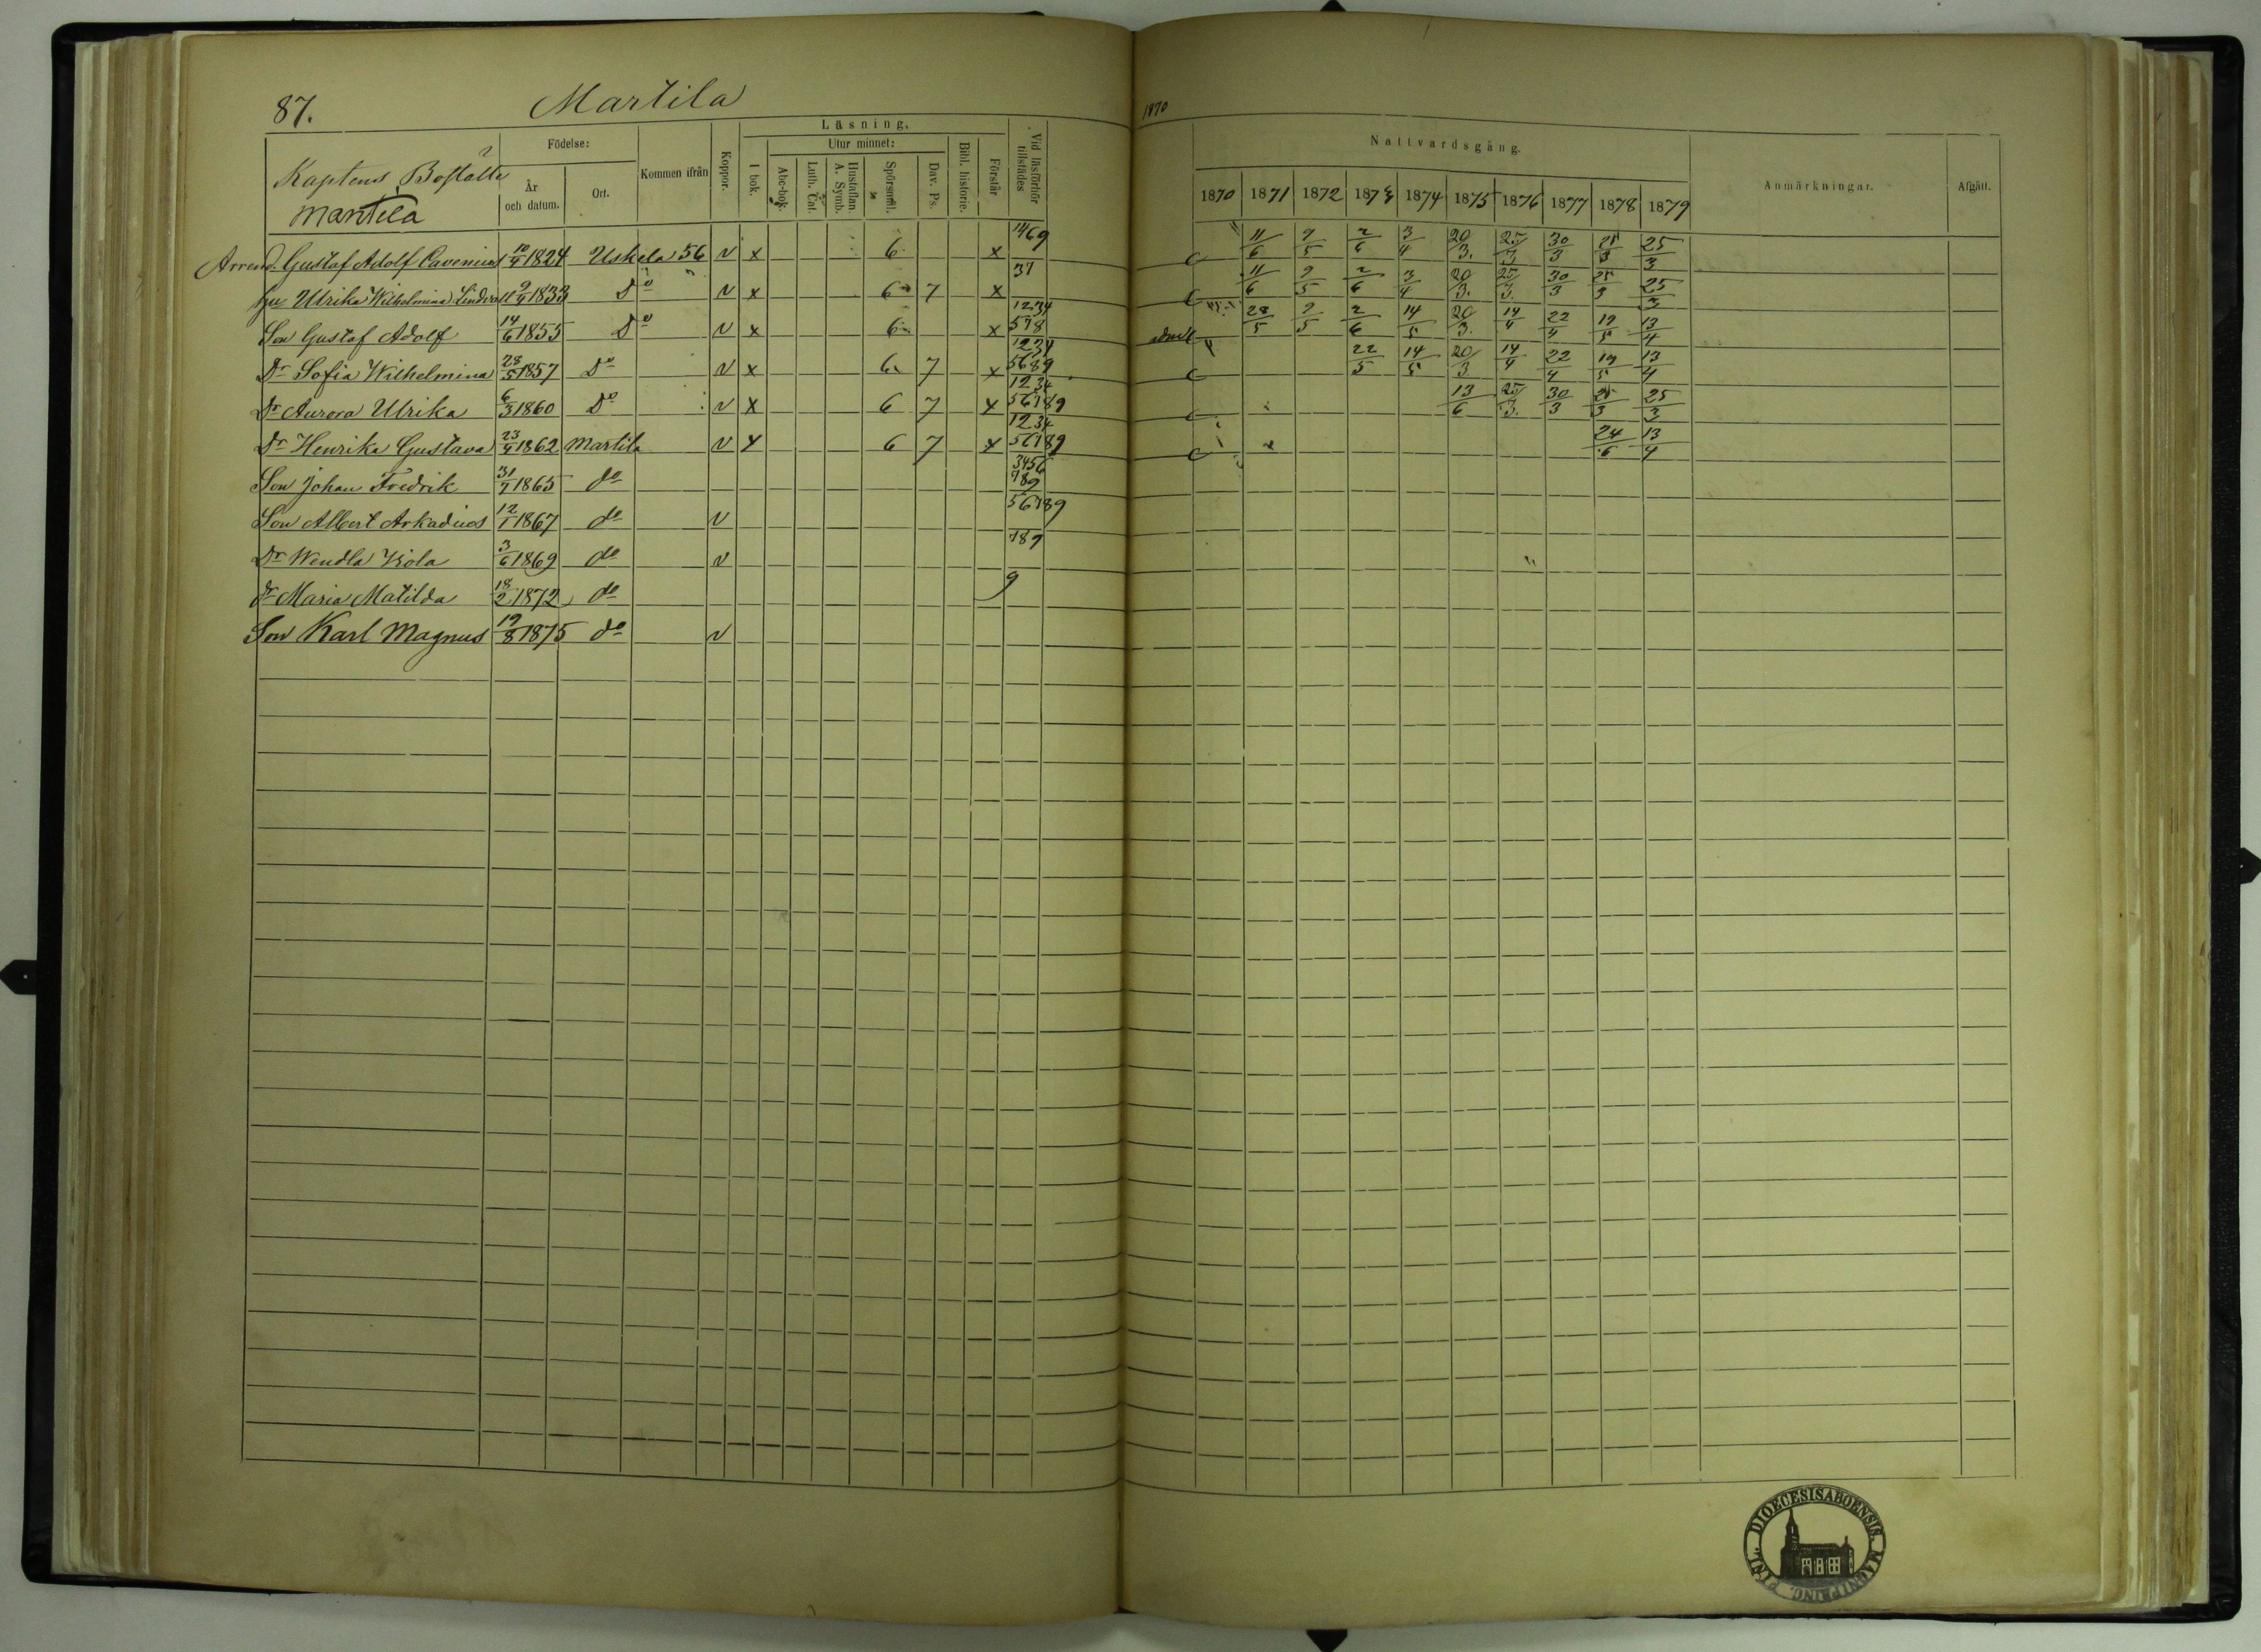 87. Martila
1870
Kaptens Boställe
Martila
Födelse:
År och datum.
Ort.
Kommen ifrån
Koppor.
Läsning.
I bok.
Utur minnet:
Abc-bok.
Luth. Cat.
Hustaflan. A. Symb.
Spörsmål.
Dav. Ps.
Bibl. historie.
Förstår
Vid läsförhör tillstädes
Nattvardsgång.
1870 1871 1872 1873 1874 1875 1876 1877 1878 1879
Anmärkningar.
Afgått.
Arrend. Gustaf Adolf Cavenius 10/4 1824 Uskela 56 v x 6 x 1469 c 11/6 9/5 2/6 3/4 20/3. 25/3 30/3 25/3 25/3
hu Ulrika Wilhelmina 9/4 1833 Do v x 6 7 x 37 c 11/6 9/5 2/6 3/4 20/3. 25/3. 30/3 25/3 25/3
Son Gustaf Adolf 14/6 1855 Do v x 6 x 1234 578 28/5 9/5 2/6 14/5 20/3. 14/4 22/4 19/5 13/4
Dr Sofia Wilhelmina 28/5 1857 Do v x 6 7 x 1234 5689 c 22/5 14/5 20/3 14/4 22/4 19/5 13/4
Dr Aurora Ulrika 6/3 1860 Do v x 6 7 x 1234 56789 c 13/6 25/3. 30/3 25/3 25/3
Dr Henrika Gustava 23/4 1862 Martila v x 6 7 x 1234 56789 c 24/6 13/4
Son Johan Fredrik 31/7 1865 do 3456 789
Son Albert Arkadius 12/1 1867 do v 56789
Dr Wendla Viola 3/6 1869 do v 789
dr Maria Matilda 18/2 1872 do 9
Son Karl Magnus 19/8 1875 do v
DIOECESIS ABOENSIS. MAGNI PRINC. FINL.